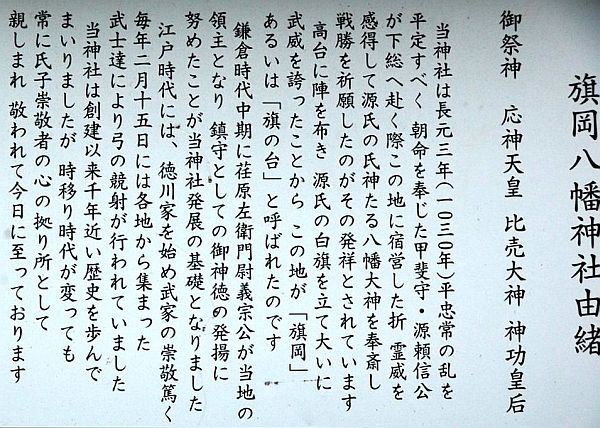 旗岡八幡神社由緒
御祭神 応神天皇 比売大神 神功皇后
当神社は長元三年(一〇三〇年)平忠常の乱を
平定すべく 朝命を奉じた甲斐守・源頼信公
が下総へ赴く際この地に宿営した折 霊威を
感得して源氏の氏神たる八幡大神を奉斎し
戦勝を祈願したのがその発祥とされています
高台に陣を布き 源氏の白旗を立て大いに
武威を誇ったことから この地が「旗岡」
あるいは「旗の台」と呼ばれたのです
鎌倉時代中期に荏原左衛門尉義宗公が当地の
領主となり 鎮守としての御神徳の発揚に
努めたことが当神社発展の基礎となりました
江戸時代には、徳川家を始め武家の崇敬篤く
毎年二月十五日には各地から集まった
武士達により弓の競射が行われていました
当神社は創建以来千年近い歴史を歩んで
まいりましたが 時移り時代が変っても
常に氏子崇敬者の心の拠り所として
親しまれ 敬われて今日に至っております